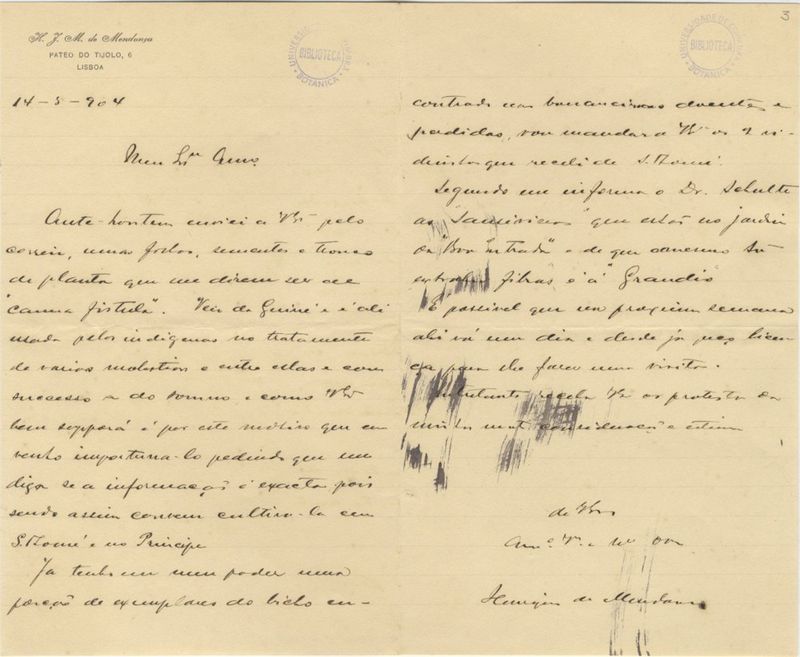 H. J. M. de Mendonça
PATEO DO TIJOLO, 6
LISBOA
UNIVERSIDADE DE COIMBRA
BIBLIOTECA
BOTANICA
14-5-904
Meu Exmo Amo
Ante-hontem enviei a VExa pelo
correio, umas folhas, sementes e tronco
de planta que me dizem ser a
"canna fistula". Veio da Guiné e é ali
usada pelos indigenas no tratamento
de varias molestias e entre estas e com
successo a do somno e como VExa
bem supporá é por este motivo que eu
venho importuna-lo pedindo que me
diga se a informação é exacta pois
sendo assim convem cultiva-la em
S. Thomé e no Principe
Ja tenho em meu poder uma
porção de exemplares do bicho en-
3
UNIVERSIDADE DE COIMBRA
BIBLIOTECA
BOTANICA
contrado nas bananeiras doentes e
perdidas, vou mandar a VExa os
que recebi de S. Thomé.
Segundo me informa o Dr. Schulte
as "Sansivieras" que estão no jardim
da "Boa Entrada" e de que
fibras é a "Grandis"
É possivel que na proxima semana
ahi vá um dia e desde já peço licen-
ça para lhe fazer uma visita.
Entretanto receba VExa os protestos da
minha mais consideração e estima
de VExa
Henrique de Mendonça